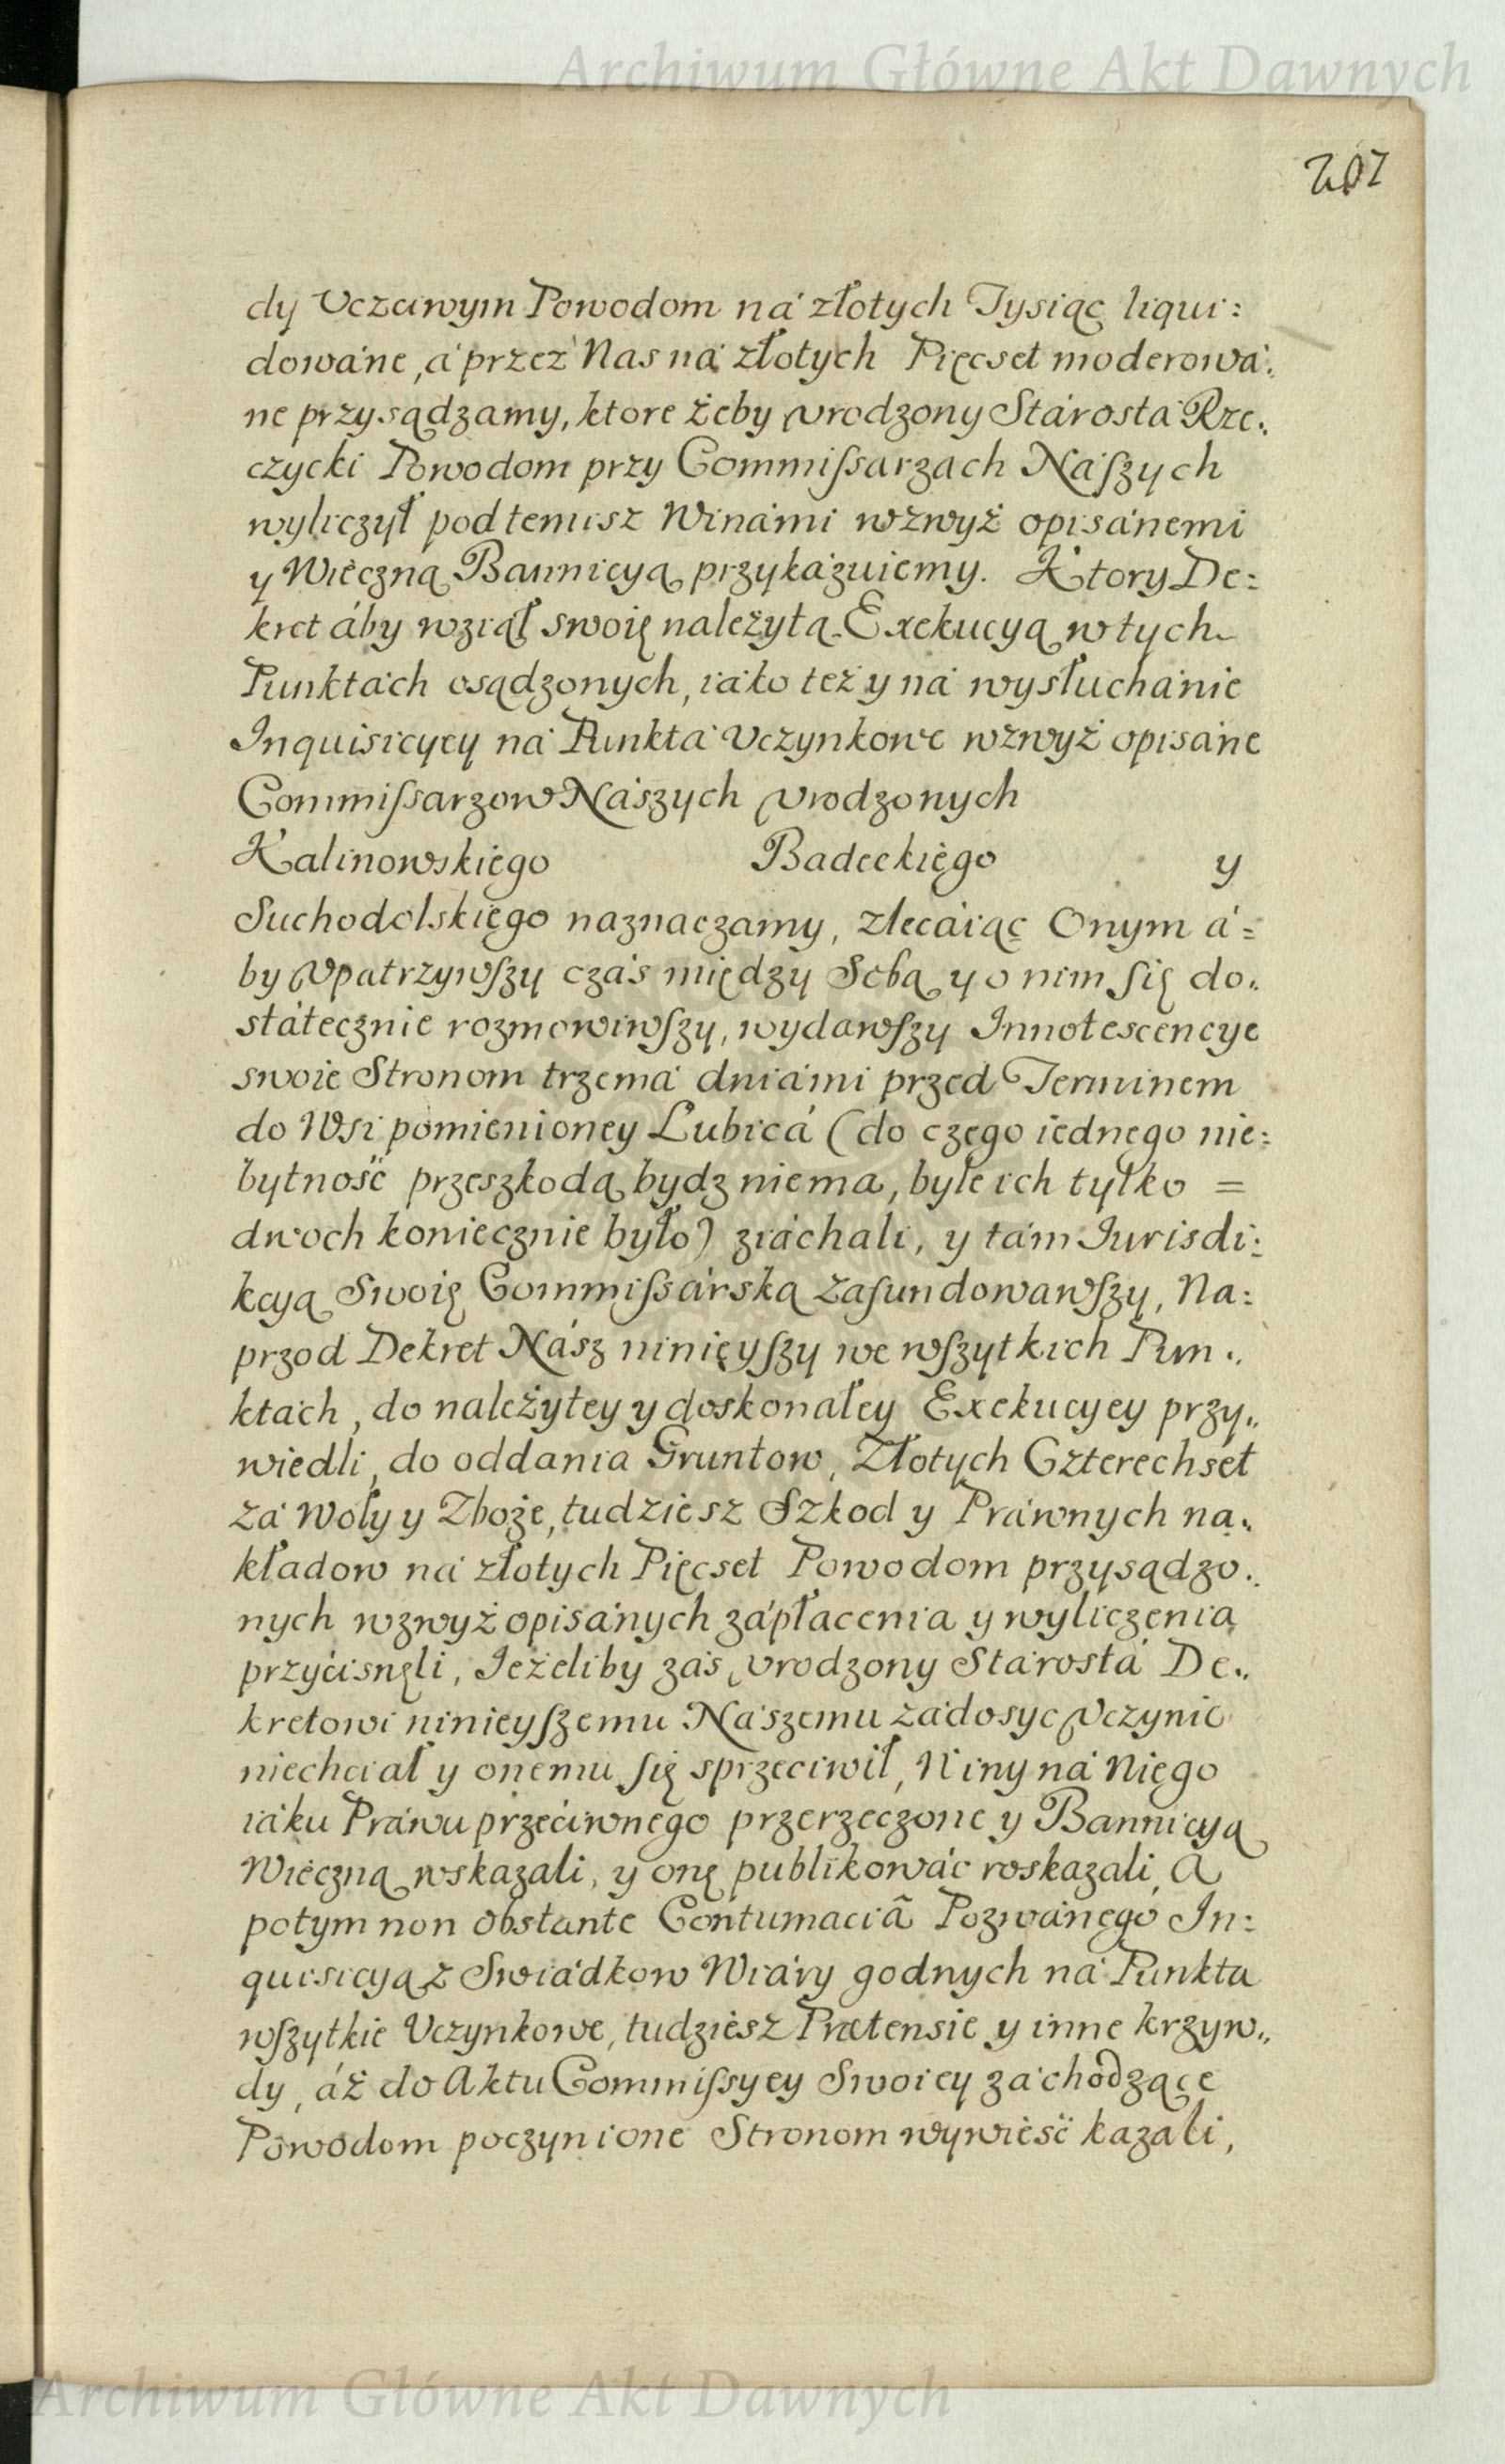 Archiwum Główne Akt Dawnych
207
dy Uczciwym Powodom ná złotych Tysiąc liqui:
dowáne, á przez Nas ná złotych Pięcset moderowá:
ne przysądzamy, ktore żeby urodzony Stárosta Rze:
czycki Powodom przy Commiſsarzach Náſzych
wyliczył pod temisz Winámi wzwyż opisánemi
y Wieczną Bannicyą przykázuiemy. Ktory De:
kret áby wziął swoię należytą Exekucyą w tych
Punktách osądzonych, iáko też y ná wysłuchánie
Inquisicyey ná Punktá Uczynkowe wzwyż opisáne
Commiſsarzow Nászych urodzonych
Kalinowskiego Badeckiego y
Suchodolskiego naznaczamy, zlecáiąc Onym á=
by upatrzywſzy czás między Sobą y o nim ſię do:
státecznie rozmowiwſzy, wydawſzy Innotescencye
swoie Stronom trzemá dniámi przed Terminem
do Wsi pomienioney Lubicá (do czego iednego nie:
bytność przeszkodą bydz niema, byle ich tylko =
dwoch koniecznie było) ziáchali, y tám Iurisdi:
kcyą Swoię Commiſsárską zafundowawſzy, Na:
przod Dekret Nász ninięyſzy we wſzytkich Pun:
ktách, do należytey y doskonáłey Exekucyey przy:
wiedli, do oddania Gruntow, Złotych Czterechset
zá Woły y Zboże, tudziesz Szkod y Práwnych na:
kładow ná złotych Pięcset Powodom przysądzo:
nych wzwyż opisánych zápłacenia y wyliczenia
przyćisnęli, Ieżeliby zás urodzony Stárostá De:
kretowi ninieyſzemu Nászemu zádosyc Uczynic
niechciał y onemu ſię sprzeciwił, Winy ná Niego
iáku Práwu przećiwnego przerzeczone y Bannicyą
Wieczną wskazali, y onę publikowác roskazali, A
potym non obstante Contumaciâ Pozwánego In:
quisicyą z Swiádkow Wiáry godnych ná Punkta
wſzytkie Uczynkowe, tudziesz Prætensie y inne krzyw:
dy, áż do Aktu Commiſsyey Swoiey záchodzące
Powodom poczynione Stronom wywieść kazali,
Archiwum Główne Akt Dawnych